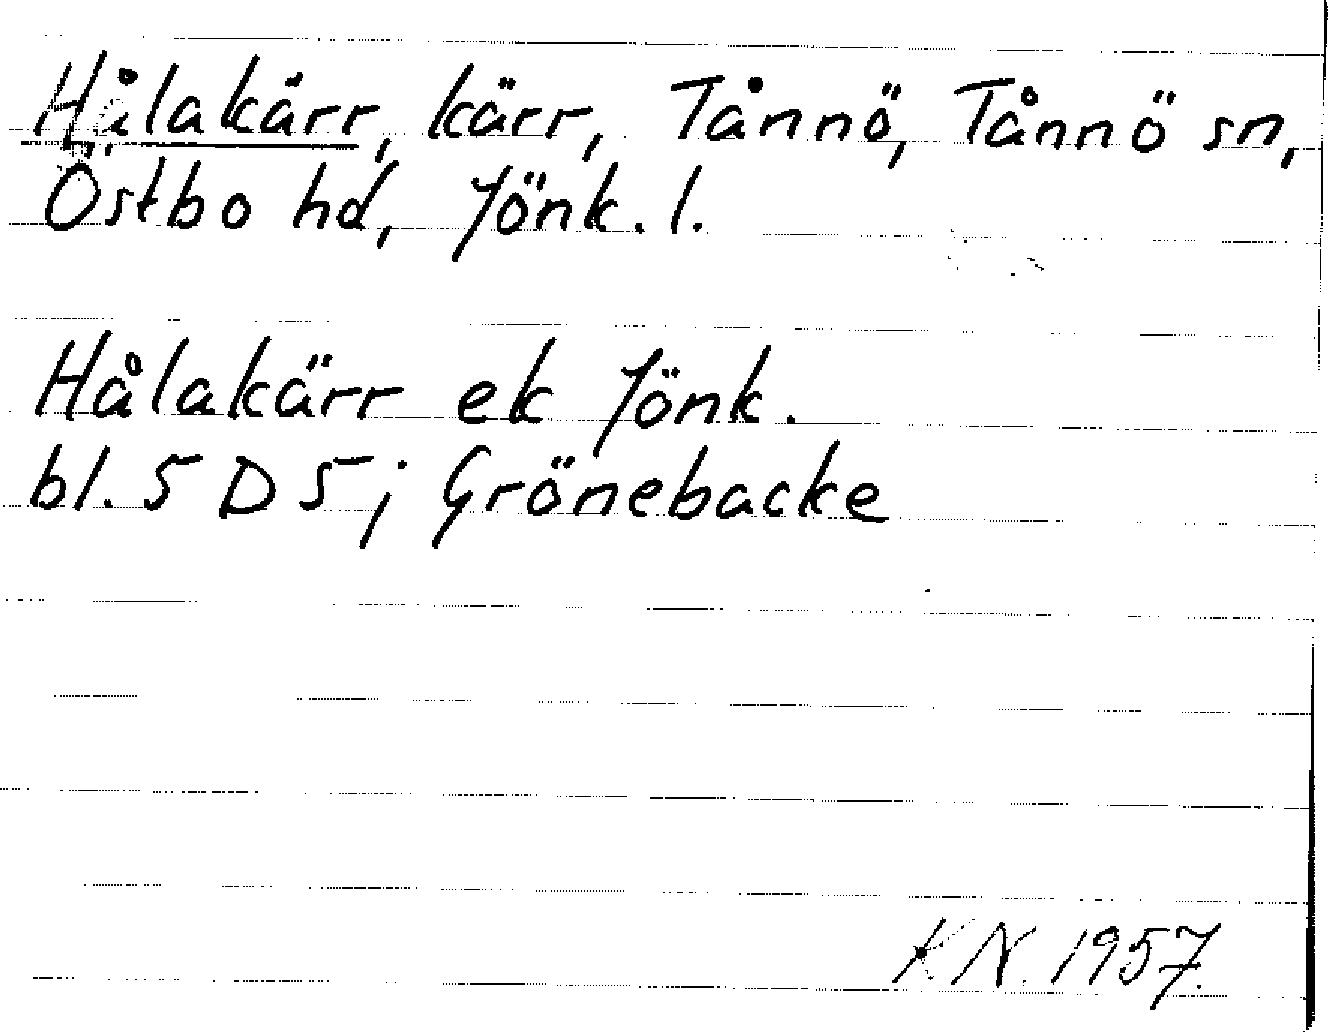 Hålakärr, kärr, Tånnö, Tånnö sn,
Östbo hd, Jönk. l.
Hålakärr ek Jönk.
bl. 5 D 5; Grönebacke
K N. 1957.